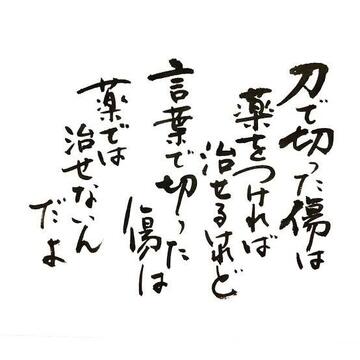 刀で切った傷は
薬をつければ
治せるけれど
言葉で切った
傷は
薬では
治せないん
だよ